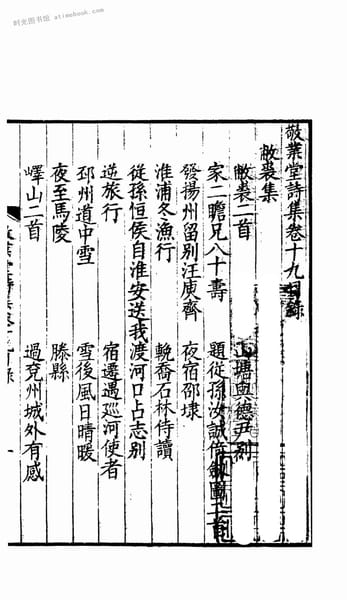 时光图书馆 atimebook.com
敬業堂詩集卷十九目錄
敝裘集
敝裘二首
山塘與德尹別
家二瞻兄八十壽
題從孫汝誠
圖二首
發揚州留別汪庾齋
夜宿邵埭
淮浦冬漁行
輓喬石林侍讀
從孫恒侯自淮安送我渡河口占志別
逆旅行
宿遷遇巡河使者
邳州道中雪
雪後風日晴暖
夜至馬陵
滕縣
嶧山二首
過兗州城外有感